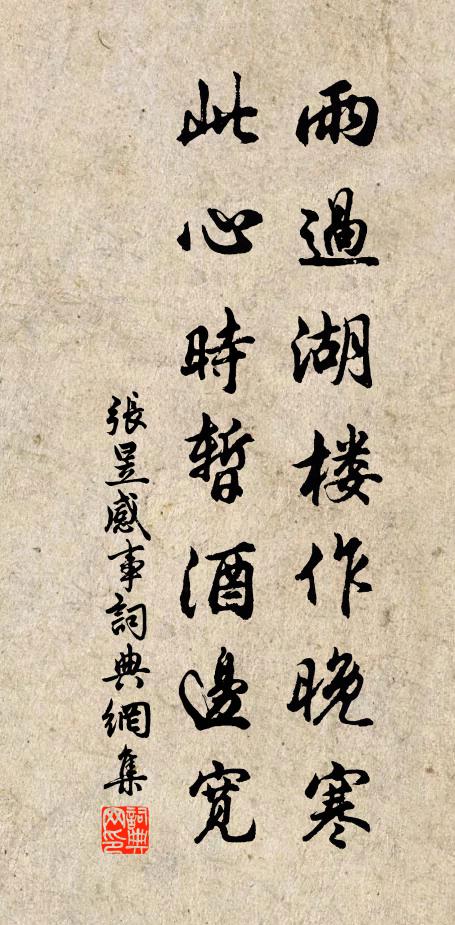 雨過湖楼作晚寒
此心時暫酒邊寬
張昱感事詞典網集
詞典
网印